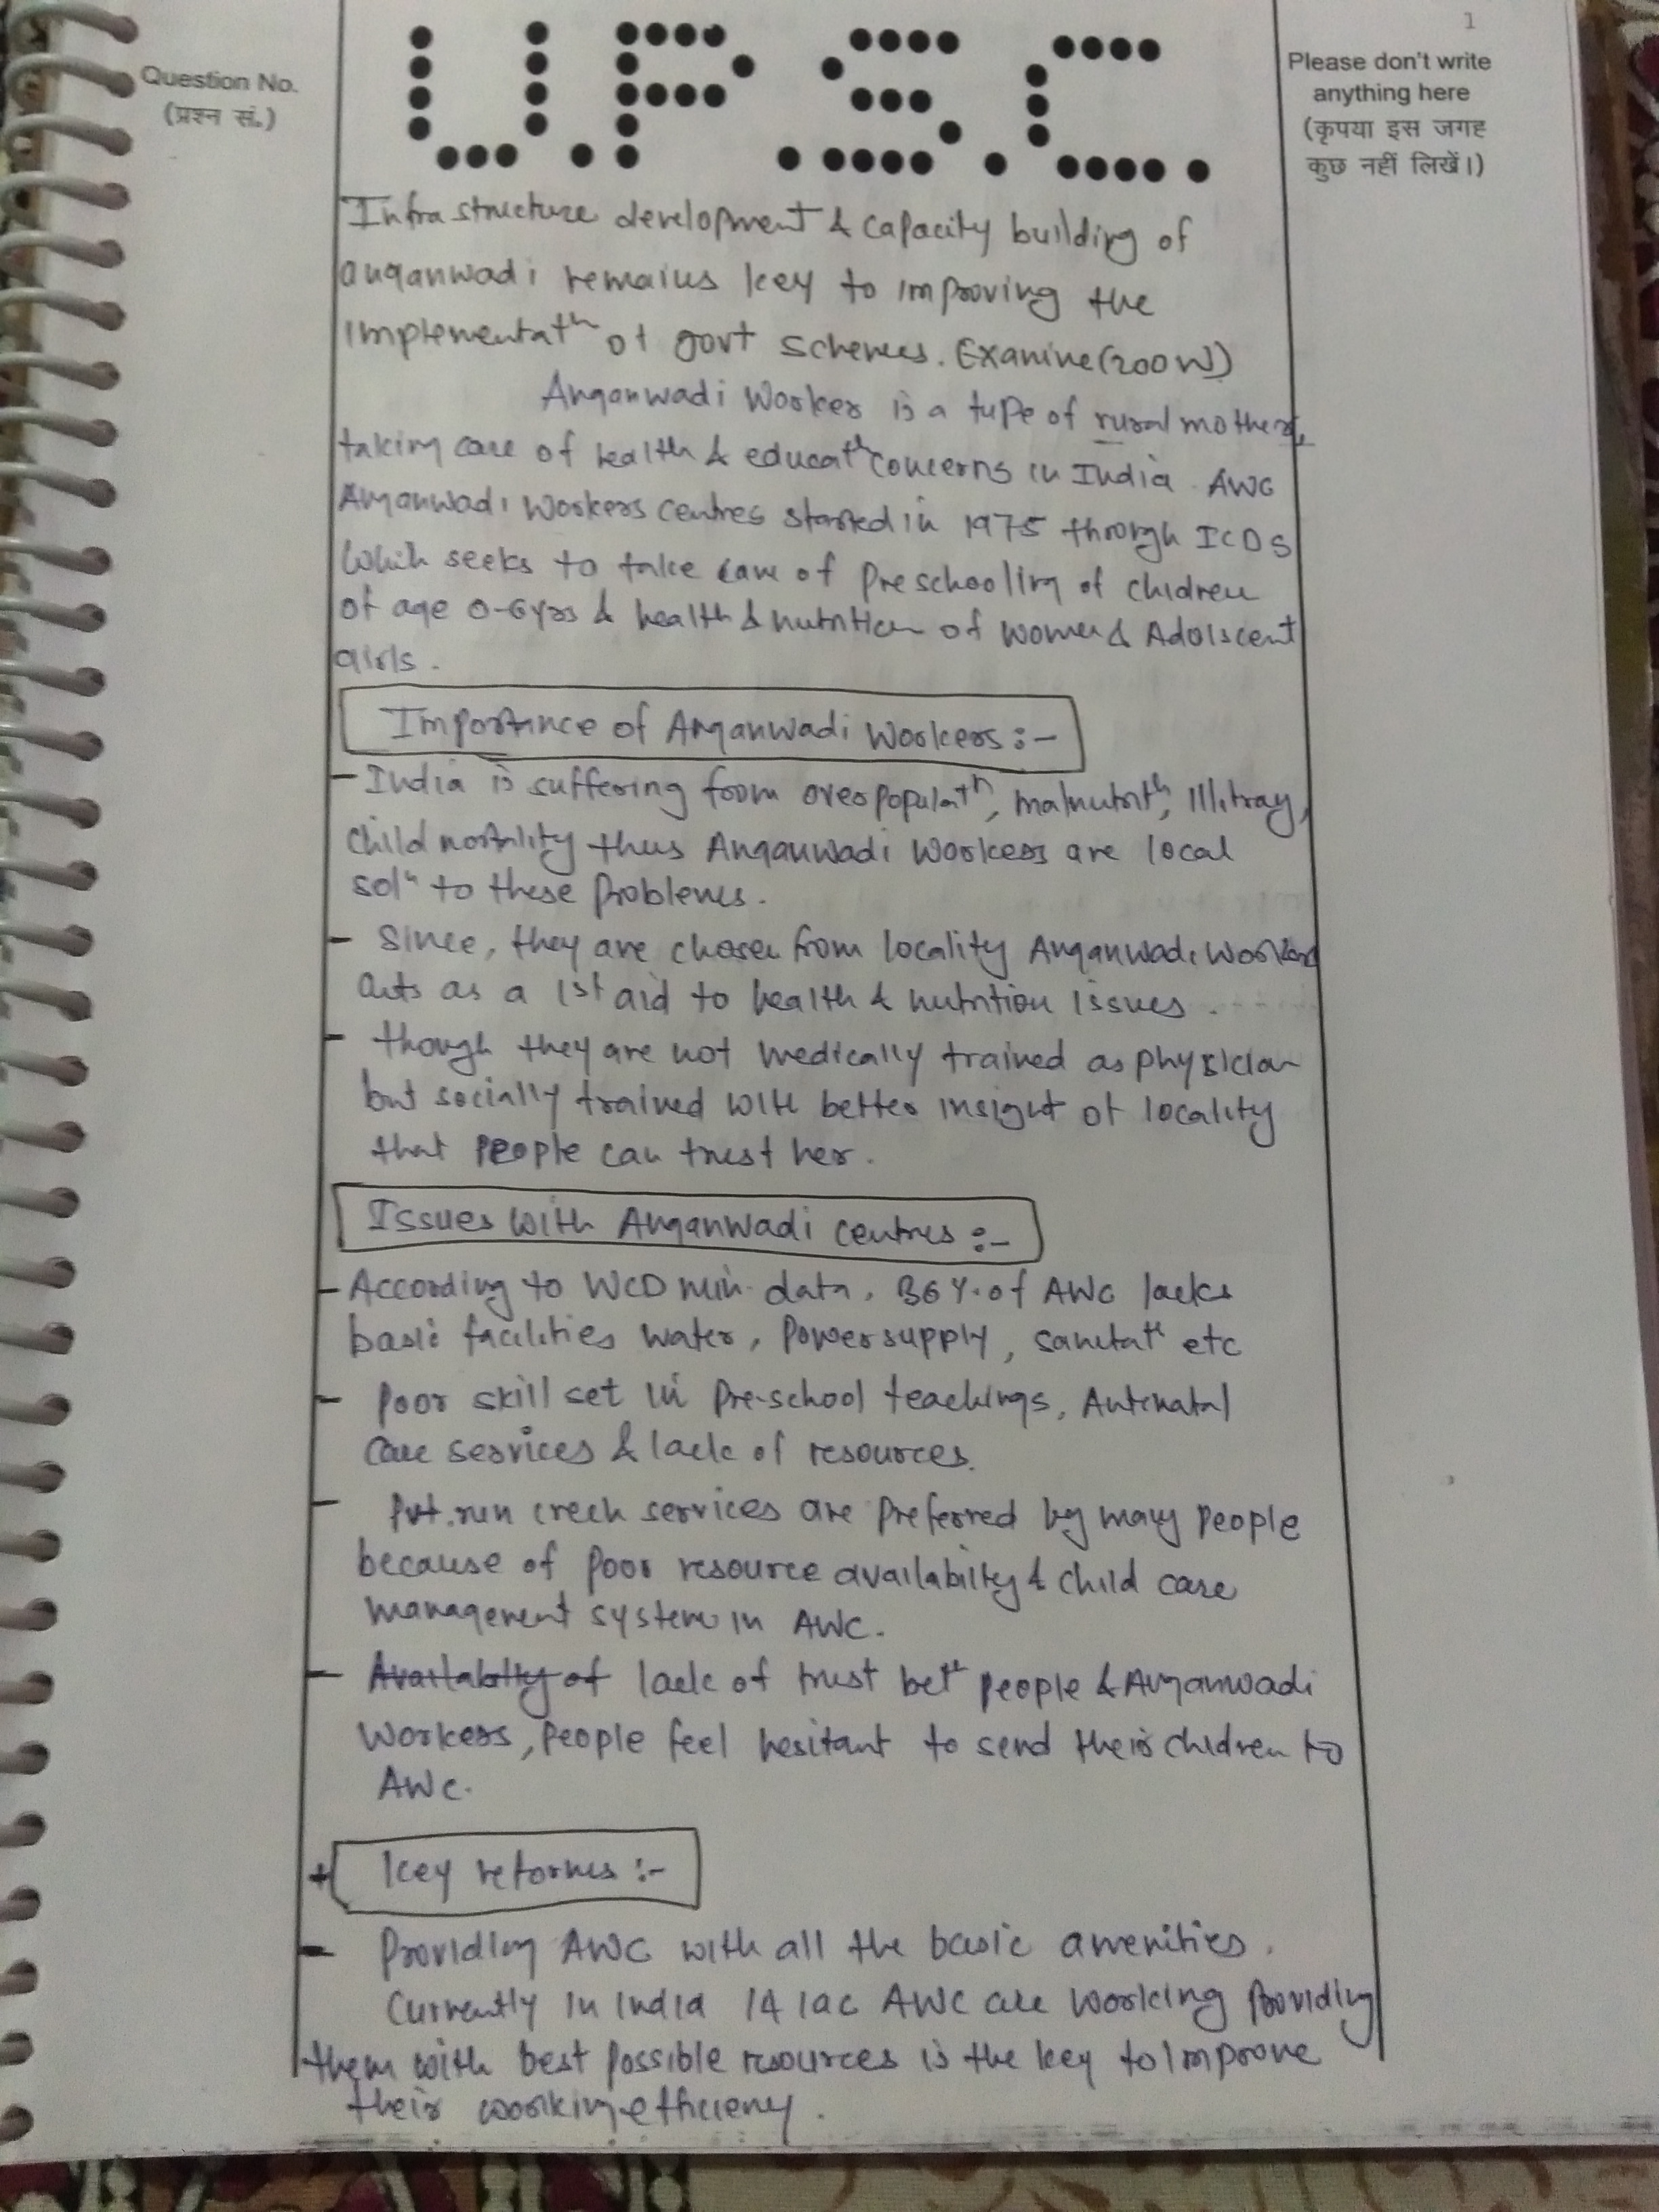 1
Question No.
(प्रश्न सं.)
U.P.S.C.
Please don't write
anything here
(कृपया इस जगह
कुछ नहीं लिखें।)
Infrastructure development & capacity building of
anganwadi remains key to improving the
implementatn of govt schemes. Examine (200W)
Anganwadi Worker is a type of rural mothers,
taking care of health & educatn concerns in India. AWC
Anganwadi Workers centres started in 1975 through ICDS
which seeks to take care of preschooling of chidren
of age 0-6yrs & health & nutrition of women & Adolscent
girls.
Importance of Anganwadi Workers :-
- India is suffering from overpopulatn, malnutritn, Illitray,
child mortality thus Anganwadi Workers are local
soln to these problems.
- Since, they are chosen from locality Anganwadi Workers
acts as a 1st aid to health & nutrition issues.
- though they are not medically trained as physician
but socially trained with better insight of locality
that people can trust her.
Issues with Anganwadi centres :-
- According to WCD min. data, 36%. of AWC lacks
basic facilities water, power supply, sanitatn etc
- Poor skill set in Pre-school teachings, Antinatal
care services & lack of resources.
- Pvt. run crech services are preferred by many people
because of poor resource availability & child care
management system in AWC.
- Availablty of lack of trust betn people & Anganwadi
Workers, people feel hesitant to send their chidren to
AWC.
+ Key reforms :-
- Providing AWC with all the basic amenities.
Currently in India 14 lac AWC are working providing
them with best possible resources is the key to improve
their working efficieny.